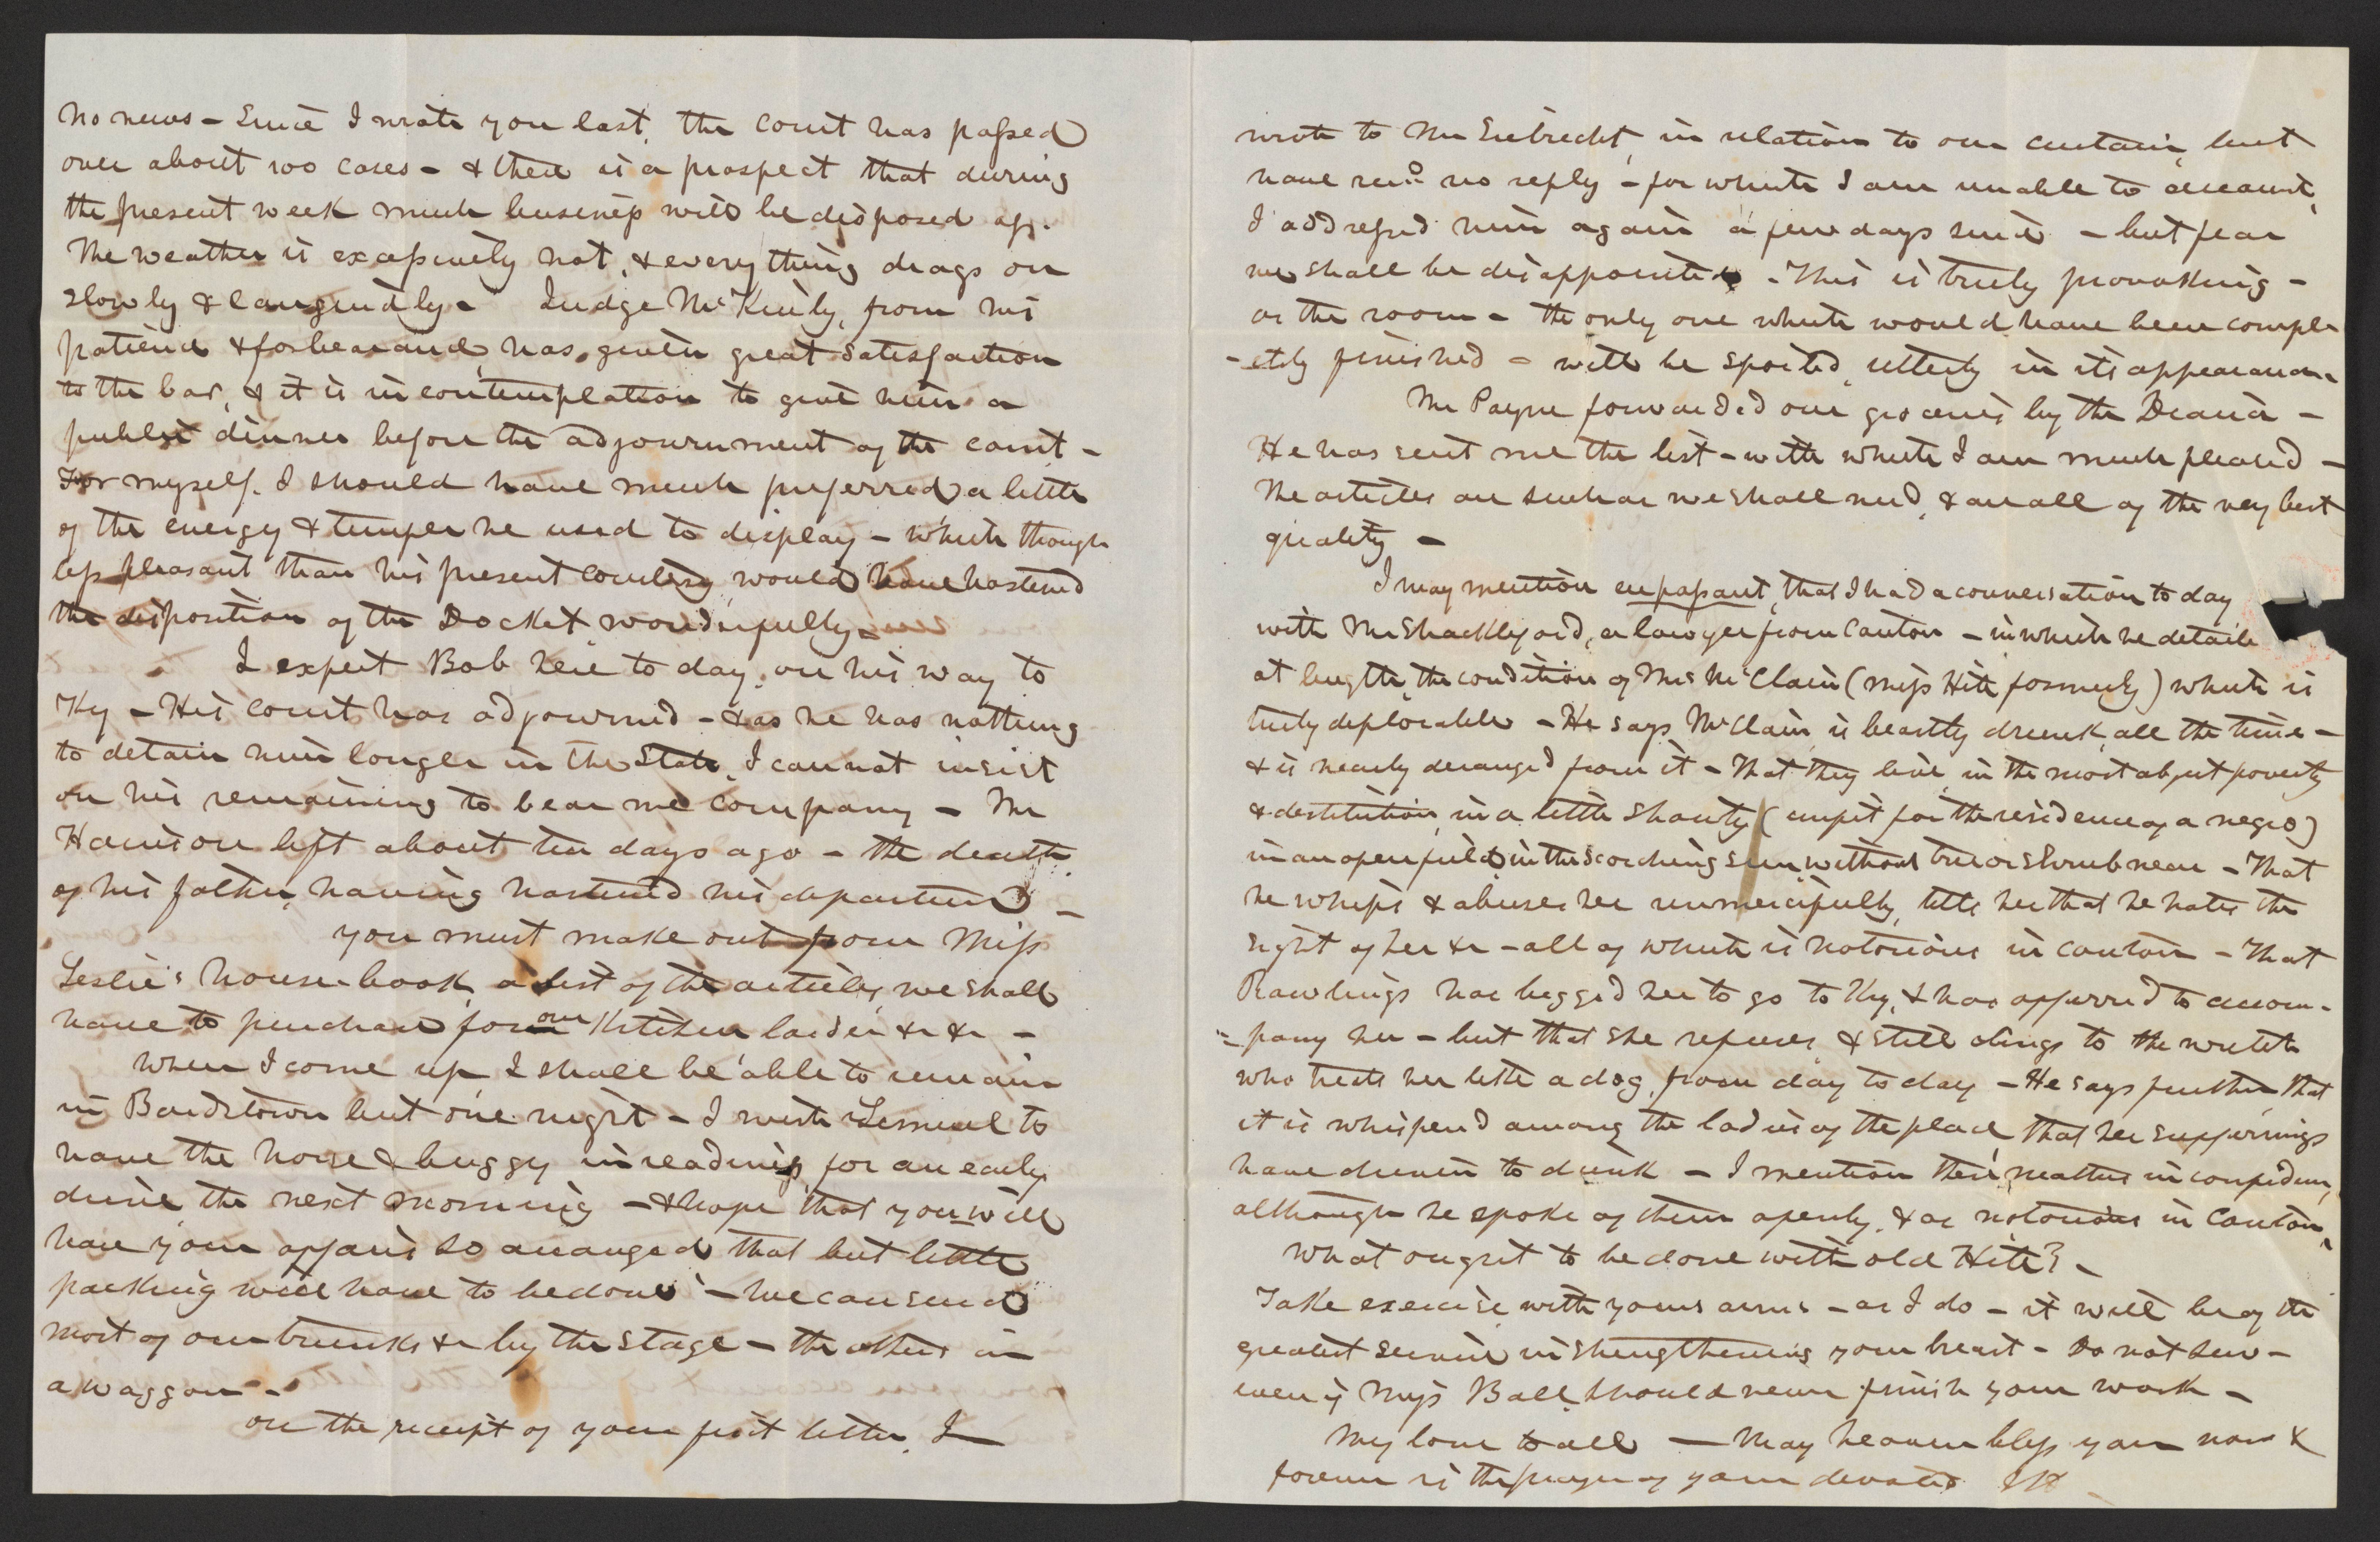 no news - Since I wrote you last, the court has passed
over about 100 cases - & there is a prospect that during
the present week much business will be disposed of.
The weather is excessively hot, & everything drags on
slowly & languidly - Judge McKinly, from his
patience & forbearance, has given great satisfaction
to the bar, & it is in contemplation to give him a
public dinner before the adjournment of the court -
For myself. I should have much preferred a little
of the energy & temper he used to display - which though
less pleasant than his present courtesy, would have hastened
the disposition of the Docket wonderfully -
I expect Bob here to day, on his way to
Ky - His court has adjourned - & as he has nothing
to detain him longer in the State, I cannot insist
on his remaining to bear me company - Mr
Harrison left about ten days ago - the death
of his father, having hastened his departure -
you must make out from Miss
Leslie's house-book, a list of the articles we shall
have to purchase for our Kitchen larder &c &c -
When I come up I shall be able to remain
in Bardstown but one night - I wish Lemuel to
have the horse & buggy in readiness for an early
drive the next morning - & hope that you will
have your affairs so arranged that but little
packing will have to be done - We can send
most of our trunks &c by the stage - the others in
a waggon -
On the receipt of your first letter, I
wrote to Mr Siebrecht, in relation to our curtain, but
have recd no reply - for which I am unable to account,
I addressed him again a few days since - but fear
we shall be disappointed - This is truly provoking -
as the room - the only one which would have been compl-
-etely finished - will be spoiled, utterly in its appearance
Mr Payne forwarded our groceries by the Diana -
He has sent me the list - with which I am much pleased -
The articles are such as we shall need, & are all of the very best
quality -
I may mention en passant, that I had a conversation to day
with Mr Shackleford, a lawyer from Canton - in which he detaile
at length, the condition of Mrs McClain (Miss Hite formerly) which is
truly deplorable - He says McClain is beastly drunk, all the time -
& is nearly deranged from it - That they live in the most abject poverty
& destitution, in a little shanty (unfit for the residence of a negro)
in an open field, in the scorching sun, without tree or shrub near - That
he whips & abuses her unmercifully, tells her that he hates the
sight of her &c - all of which is notorious in Canton - That
Rawlings has begged her to go to Ky, & has offerred to accom-
-pany her - but that she refuses, & still clings to the wretch
who treats her like a dog, from day to day - He says further, that
it is whispered among the ladies of the place that her sufferings
have driven to drink - I mention these matters in confidence,
although he spoke of them openly, & as notorious in Canton,
What ought to be done with old Hite? -
Take exercise with your arms - as I do - it will be of the
greatest service in strengthening your breast - Do not sew -
even if Miss Ball should never finish your work -
My love to all - May heaven bless you now &
forever is the prayer of your devoted